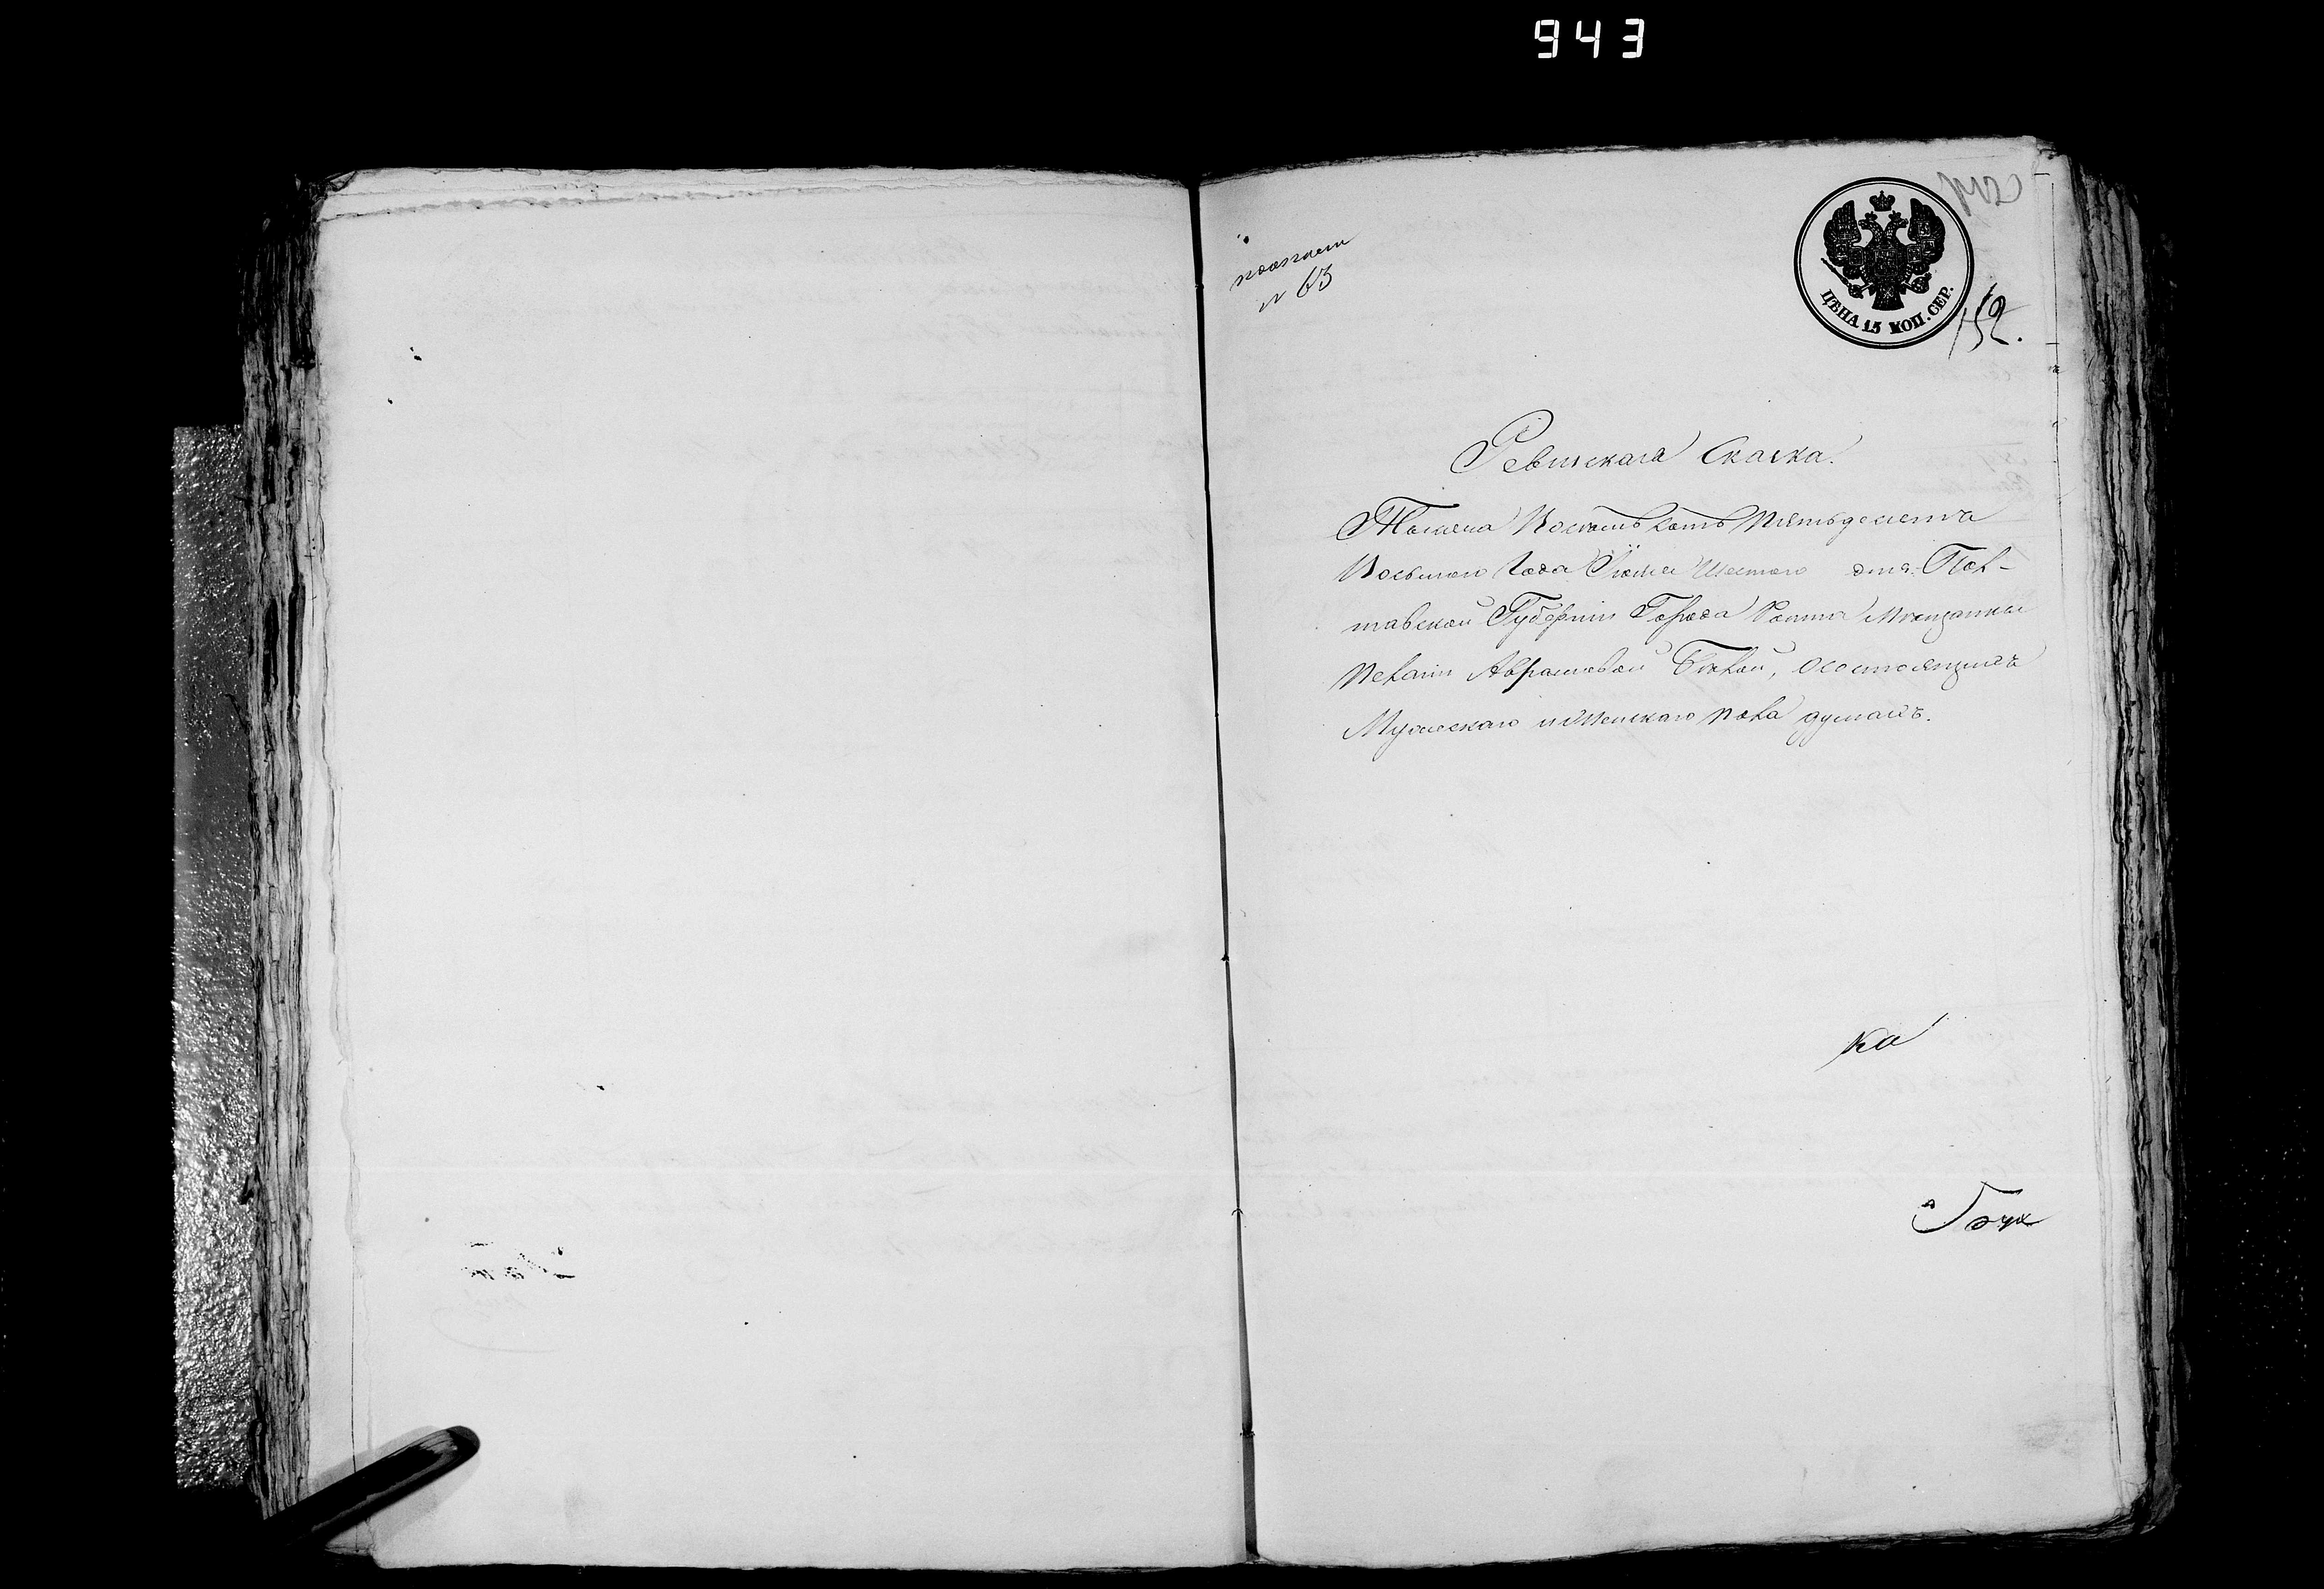 943
№ 63
ЦѢНА 15 КОП. СЕР.
152.
Ревизская Сказка.
Тысяча Восемь сотъ пятьдесятъ
Восьмого Года Іюня Шестого дня Пол-
тавской Губерніи Города Ромна Мѣщанки
Пелагіи Абрамовой Бѣлой, о состоящихъ
Мужескаго и Женскаго пола душахъ.
ка